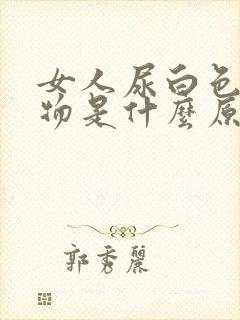 女人尿白色
物是什麼原
郭秀麗